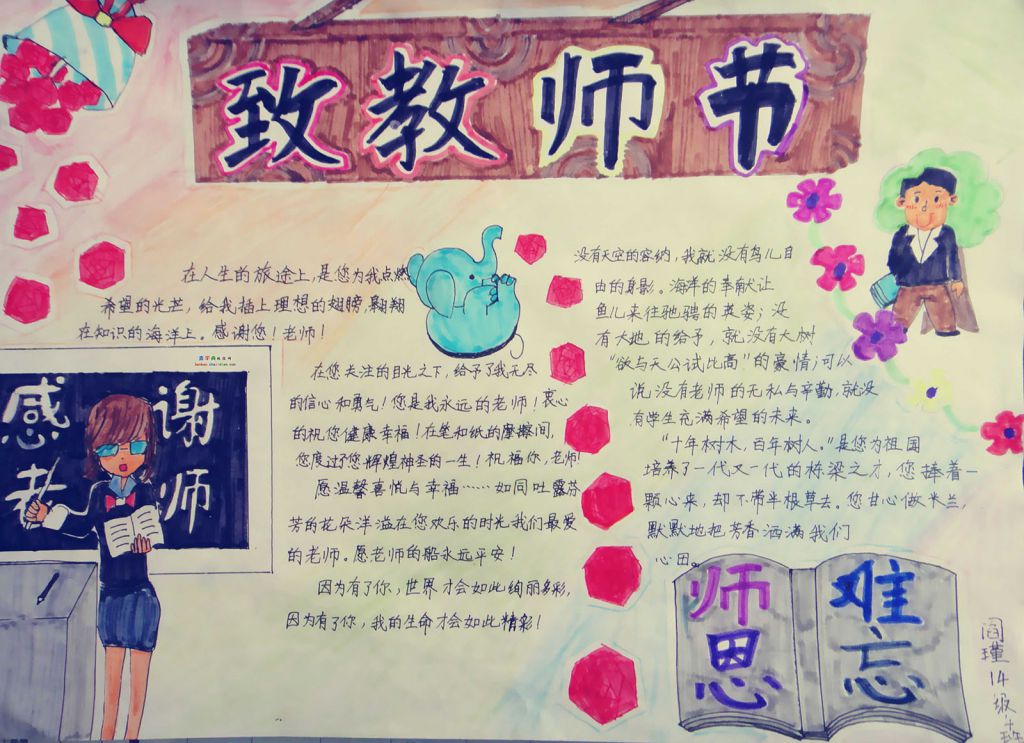 致教师节
在人生的旅途上,是您为我点燃
希望的光芒,给我插上理想的翅膀,翱翔
在知识的海洋上。感谢您!老师!
在您关注的目光之下,给予了我无尽
的信心和勇气!您是我永远的老师!衷心
的祝您健康幸福!在笔和纸的摩擦间,
您度过了您辉煌神圣的一生!祝福你,老师!
愿温馨喜悦与幸福……如同吐露芬
芳的花朵洋溢在您欢乐的时光我们最爱
的老师。愿老师的船永远平安!
因为有了你,世界才会如此绚丽多彩,
因为有了你,我的生命才会如此精彩!
没有天空的容纳,我就没有鸟儿自
由的身影。海洋的奉献让
鱼儿来往驰骋的英姿;没
有大地的给予,就没有大树
“欲与天公试比高”的豪情;可以
说,没有老师的无私与辛勤,就没
有学生充满希望的未来。
“十年树木,百年树人。”是您为祖国
培养了一代又一代的栋梁之才,您捧着一
颗心来,却不带半根草去。您甘心做米兰,
默默地把芳香洒满我们
心田。
感谢
老师
师恩
难忘
阎瑾14级